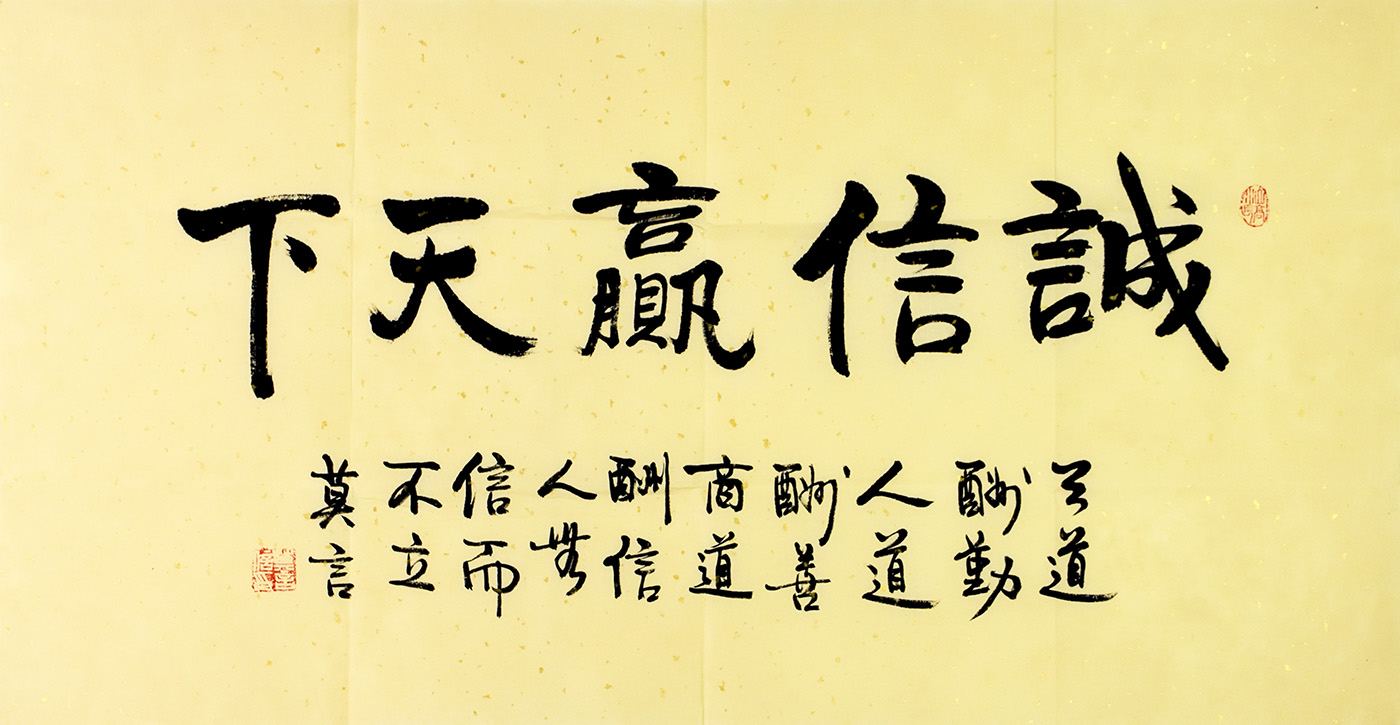 誠信贏天下
天道
酬勤
人道
酬善
商道
酬信
人無
信而
不立
莫言